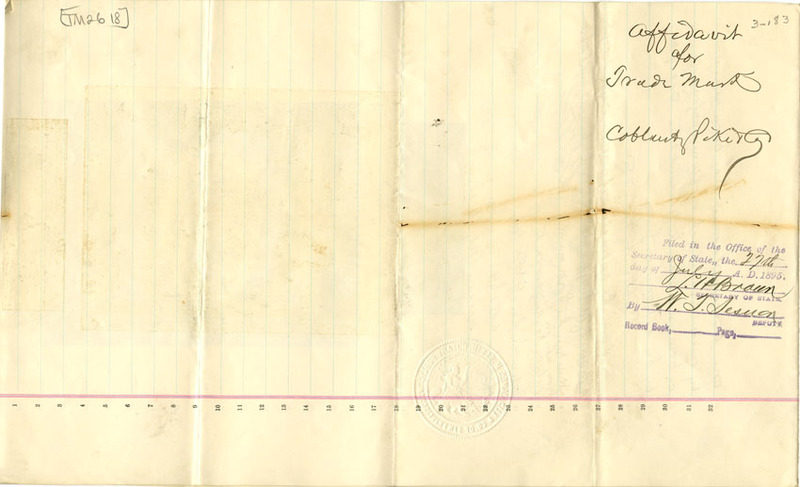 [TM2618]
3-183
Affidavit
for
Trade Mark
Filed in the Office of the
Secretary of State, the 27th
day of July A. D. 1895.
L. H. Brown
SECRETARY OF STATE
By W. T.
DEPUTY
Record Book, Page,
1 2 3 4 5 6 7 8 9 10 11 12 13 14 15 16 17 18 19 20 21 22 23 24 25 26 27 28 29 30 31 32